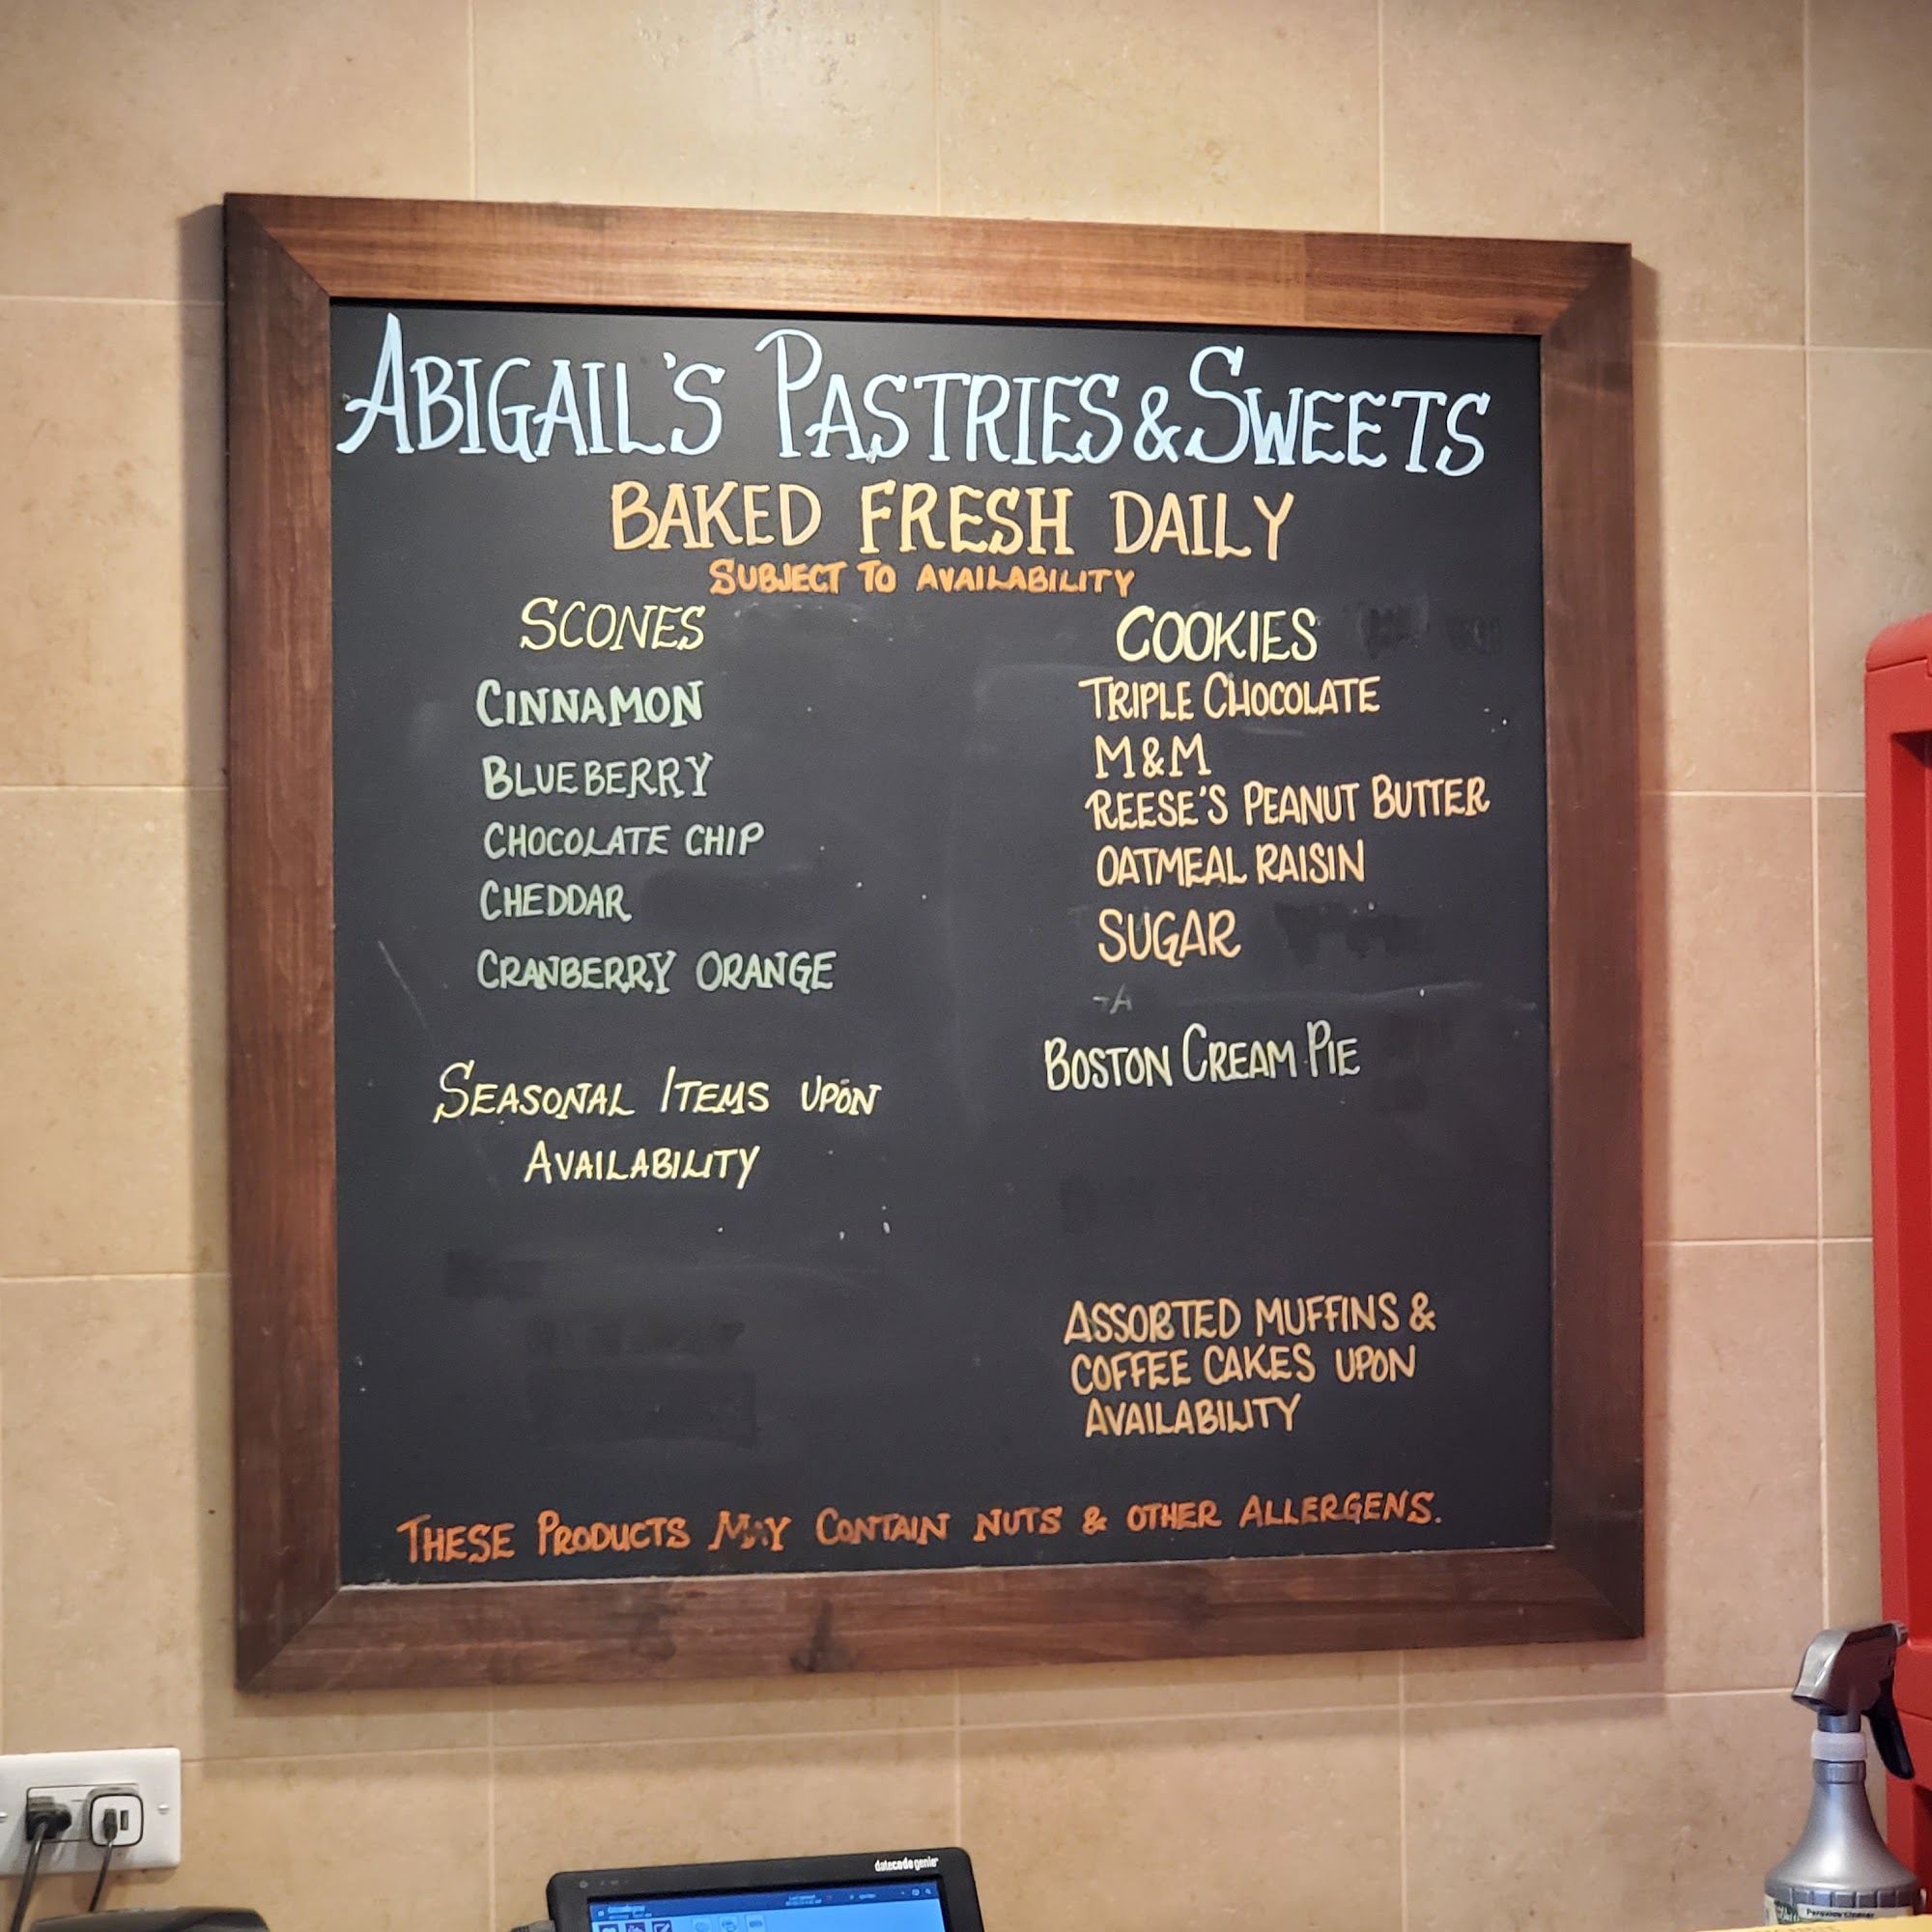 ABIGAIL'S PASTRIES & SWEETS
BAKED FRESH DAILY
SUBJECT TO AVAILABILITY
SCONES
CINNAMON
BLUEBERRY
CHOCOLATE CHIP
CHEDDAR
CRANBERRY ORANGE
SEASONAL ITEMS UPON
AVAILABILITY
COOKIES
TRIPLE CHOCOLATE
M&M
REESE'S PEANUT BUTTER
OATMEAL RAISIN
SUGAR
BOSTON CREAM PIE
ASSORTED MUFFINS &
COFFEE CAKES UPON
AVAILABILITY
THESE PRODUCTS MAY CONTAIN NUTS & OTHER ALLERGENS.
datecodegenie
Peroxide Cleaner